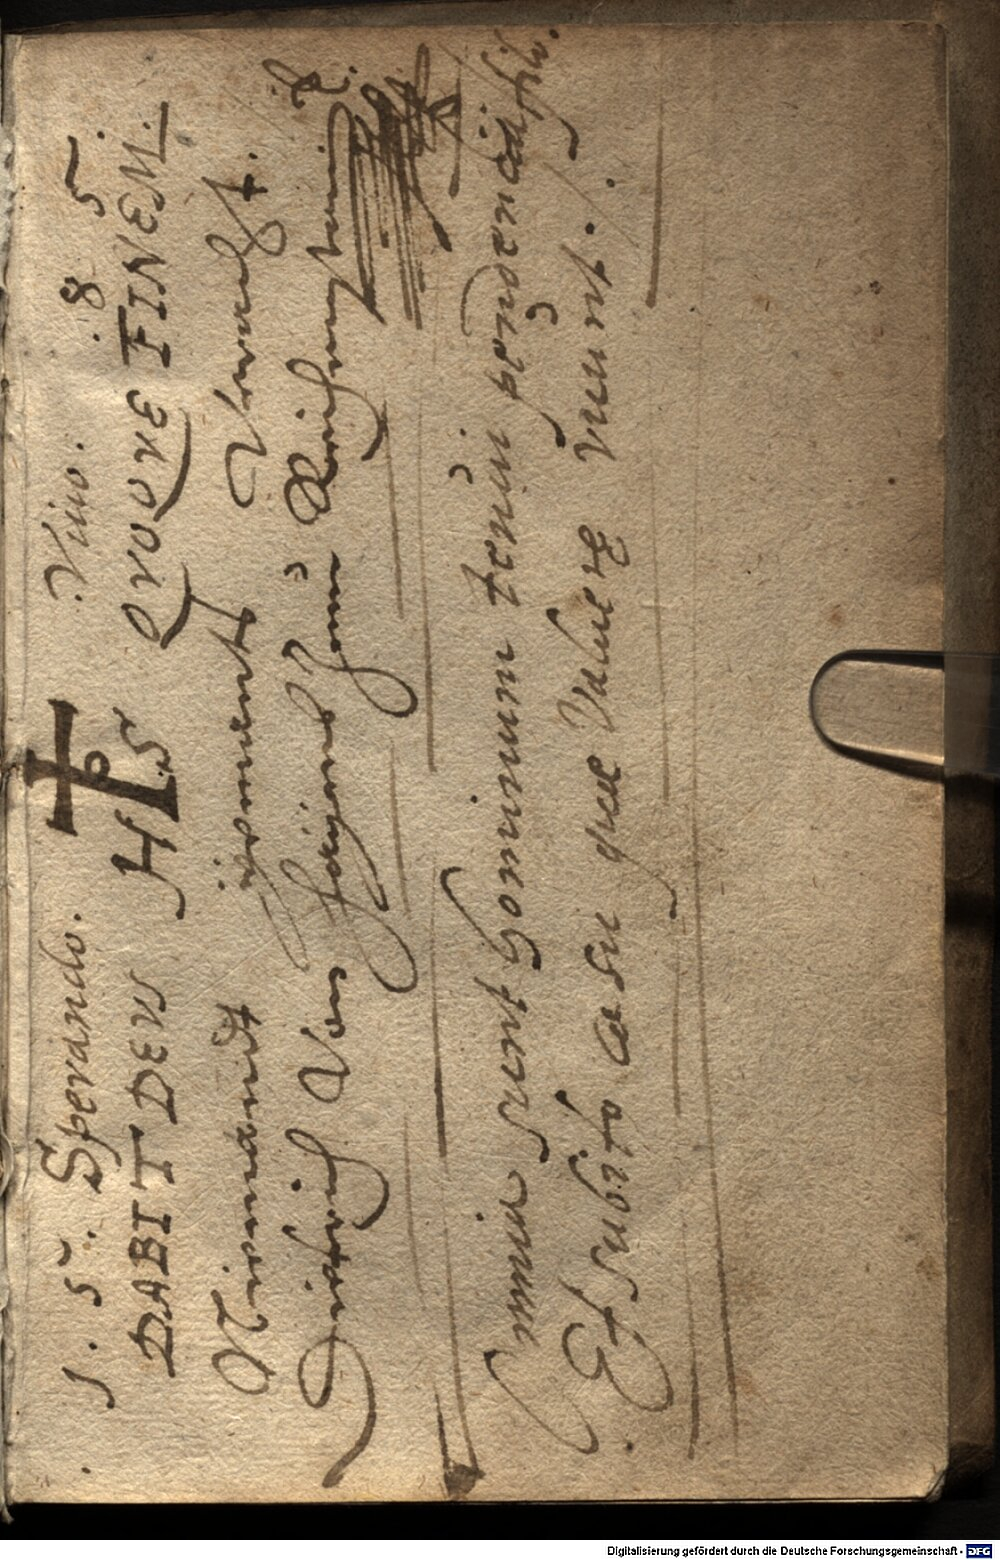 1. 5. Sperando. Viuo. .8 5.
DABIT DEVS HIS QVOQVE FINEM.
Niemandt Veracht.
Dietrich Von
Omnia sunt hominum tenui pendentia filo.
Et subito casu quae Valuere ruunt.
Digitalisierung gefördert durch die Deutsche Forschungsgemeinschaft - DFG